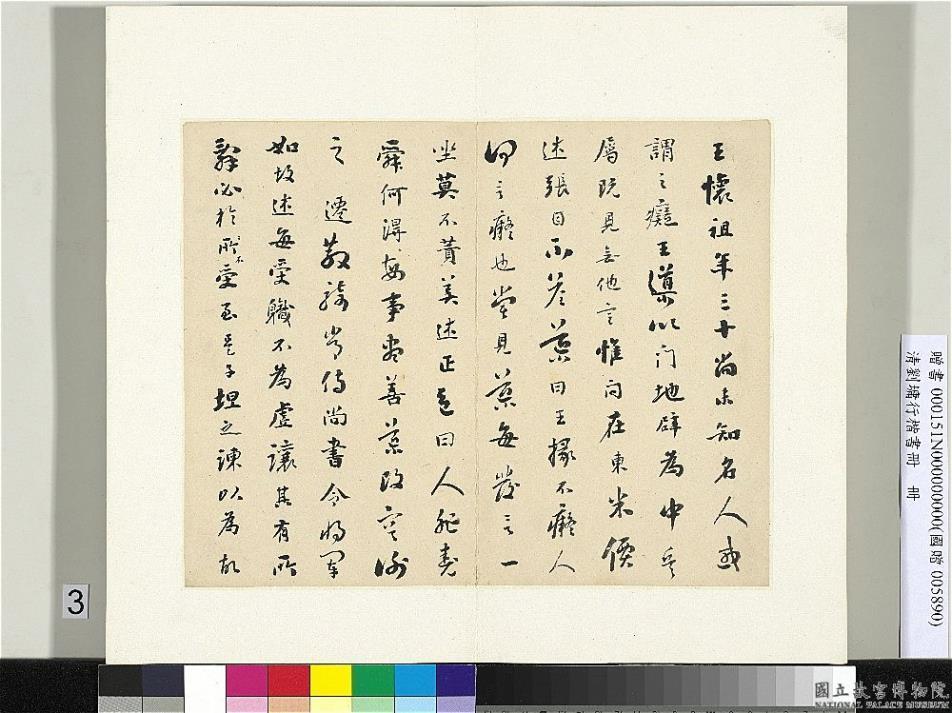 王懷祖年三十尚未知名人或
謂之癡王導以門地辟為中兵
屬既見無他言惟問在東米價
述張目不答導曰王掾不癡人
何言癡也常見導每發言一
坐莫不贊美述正色曰人非堯
舜何得每事盡善導改容謝
之 遷散騎常侍尚書令將軍
如故述每受職不為虛讓其有所
辭必於所不受至是子坦之諫以為故
贈書 000151N000000000(國贈 005890)
清劉墉行楷書冊 冊
3
國立故宮博物院
NATIONAL PALACE MUSEUM